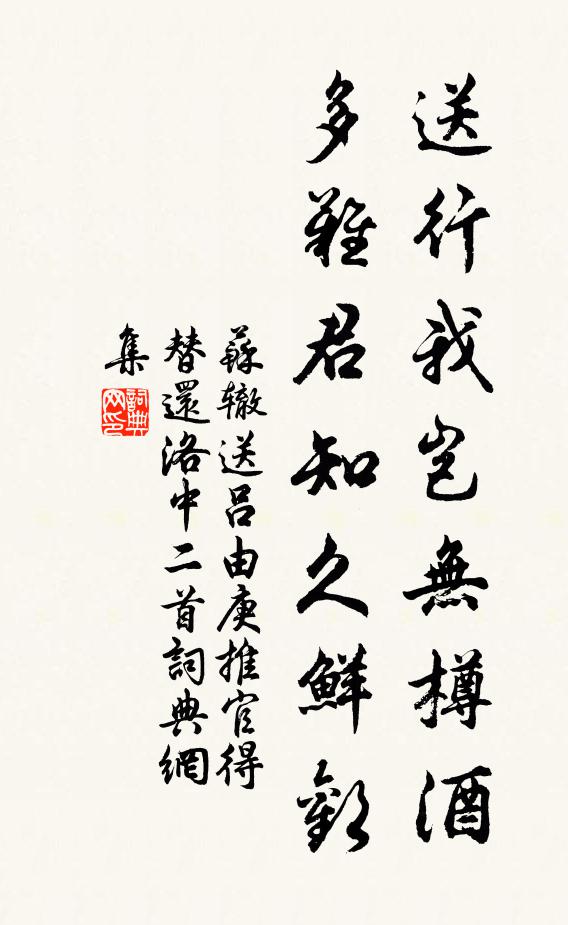 送行我豈無樽酒
多難君知久鮮歡
蘇轍送呂由庚推官得
替還洛中二首詞典網
集
詞典
网印